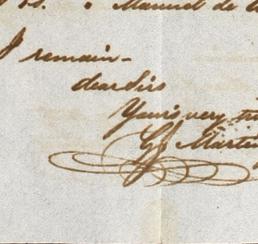 Manuel de
I remain -
dear Sirs
Yours very
Martin